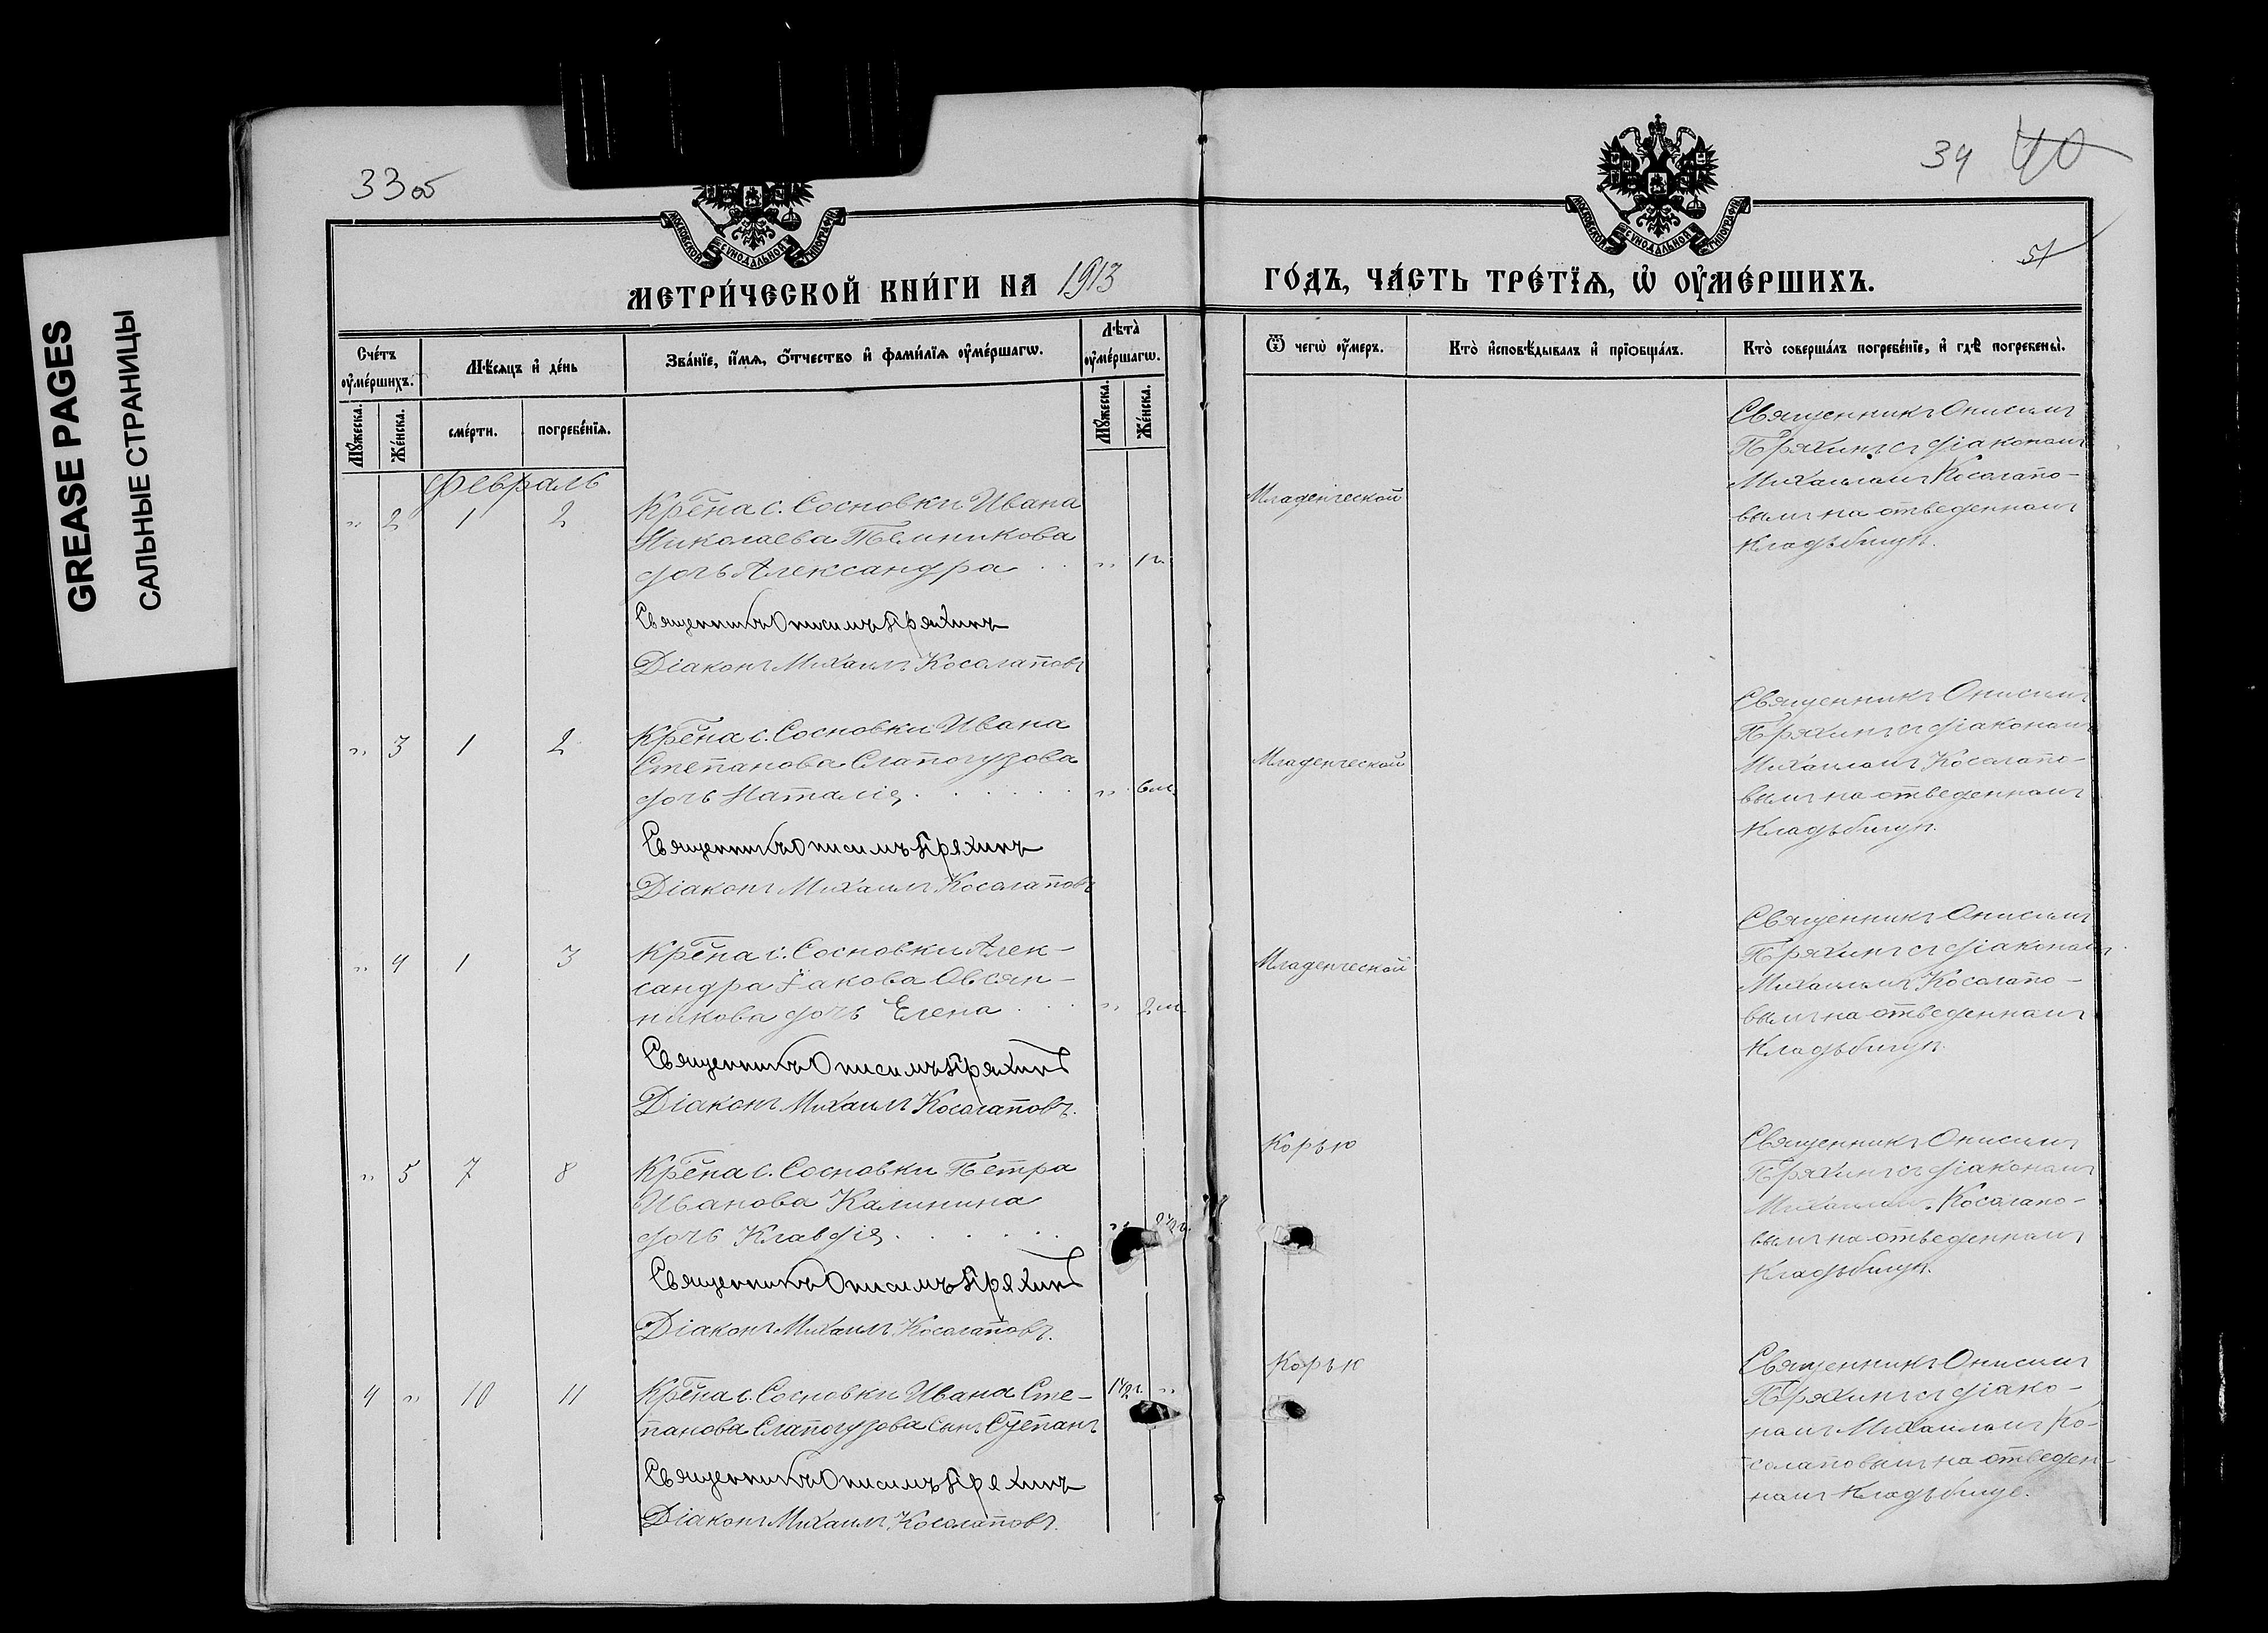 GREASE PAGES
САЛЬНЫЕ СТРАНИЦЫ
33 об
34 40
51
МОСКОВСКОЙ СѴНОДАЛЬНОЙ ТИПОГРАФІИ
МОСКОВСКОЙ СѴНОДАЛЬНОЙ ТИПОГРАФІИ
МЕТРИ́ЧЕСКОЙ КНИ́ГИ НА 1913
ГО́ДЪ, ЧА́СТЬ ТРЕ́ТЇѦ, Ѽ ОУ҆МЕ́РШИХЪ.
Сче́тъ оу҆ме́ршихъ.
Мѣ́сяцъ и҆ де́нь
Зва́нїе, и҆́мѧ, ѻ҆́тчество и҆ фами́лїѧ оу҆ме́ршагѡ.
Лѣта̀ оу҆ме́ршагѡ.
Мꙋ́жеска.
Же́нска.
сме́рти.
погребе́нїѧ.
Мꙋ́жеска.
Же́нска.
Ѿ чегѡ̀ оу҆́меръ.
Кто̀ и҆сповѣ́дывалъ и҆ прїѻбща́лъ.
Кто̀ соверша́лъ погребе́нїе, и҆ гдѣ̀ погребены̀.
Февраль
" 2 1 2
Крѣна с. Сосновки Ивана
Николаева Темникова
дочь Александра . . " 1 г.
Священникъ Онисимъ Пряхинъ
Діаконъ Михаилъ Косолаповъ
Младенческой
Священникъ Онисимъ
Пряхинъ съ діакономъ
Михаиломъ Косолапо-
вымъ на отведенномъ
кладьбищѣ.
" 3 1 2
Крѣна с. Сосновки Ивана
Степанова Слапогузова
дочь Наталія . . . . . . " 6 м.
Священникъ Онисимъ Пряхинъ
Діаконъ Михаилъ Косолаповъ
Младенческой
Священникъ Онисимъ
Пряхинъ съ діакономъ
Михаиломъ Косолапо-
вымъ на отведенномъ
кладьбищѣ.
" 4 1 3
Крѣна с. Сосновки Алек-
сандра Іакова Овсян-
никова дочь Елена . . . " 2 м.
Священникъ Онисимъ Пряхинъ
Діаконъ Михаилъ Косолаповъ.
Младенческой
Священникъ Онисимъ
Пряхинъ съ діакономъ
Михаиломъ Косолапо-
вымъ на отведенномъ
кладьбищѣ.
" 5 7 8
Крѣна с. Сосновки Петра
Иванова Калинина
дочь Клавдія . . . . . .
Священникъ Онисимъ Пряхинъ
Діаконъ Михаилъ Косолаповъ.
Корью
Священникъ Онисимъ
Пряхинъ съ діакономъ
Михаиломъ Косолапо-
вымъ на отведенномъ
кладьбищѣ.
4 " 10 11
Крѣна с. Сосновки Ивана Сте- 1 1/2 г. "
панова Слапогузова сынъ Стефанъ
Священникъ Онисимъ Пряхинъ
Діаконъ Михаилъ Косолаповъ.
Корью
Священникъ Онисимъ
Пряхинъ съ діако-
номъ Михаиломъ Ко-
солаповымъ на отведен-
номъ кладьбище.